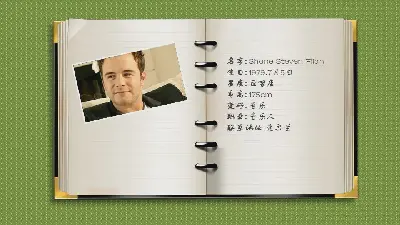 名字:Shane Steven Filan
生日:1979.7月5日
星座:巨蟹座
身高:175cm
爱好:音乐
职业:音乐人